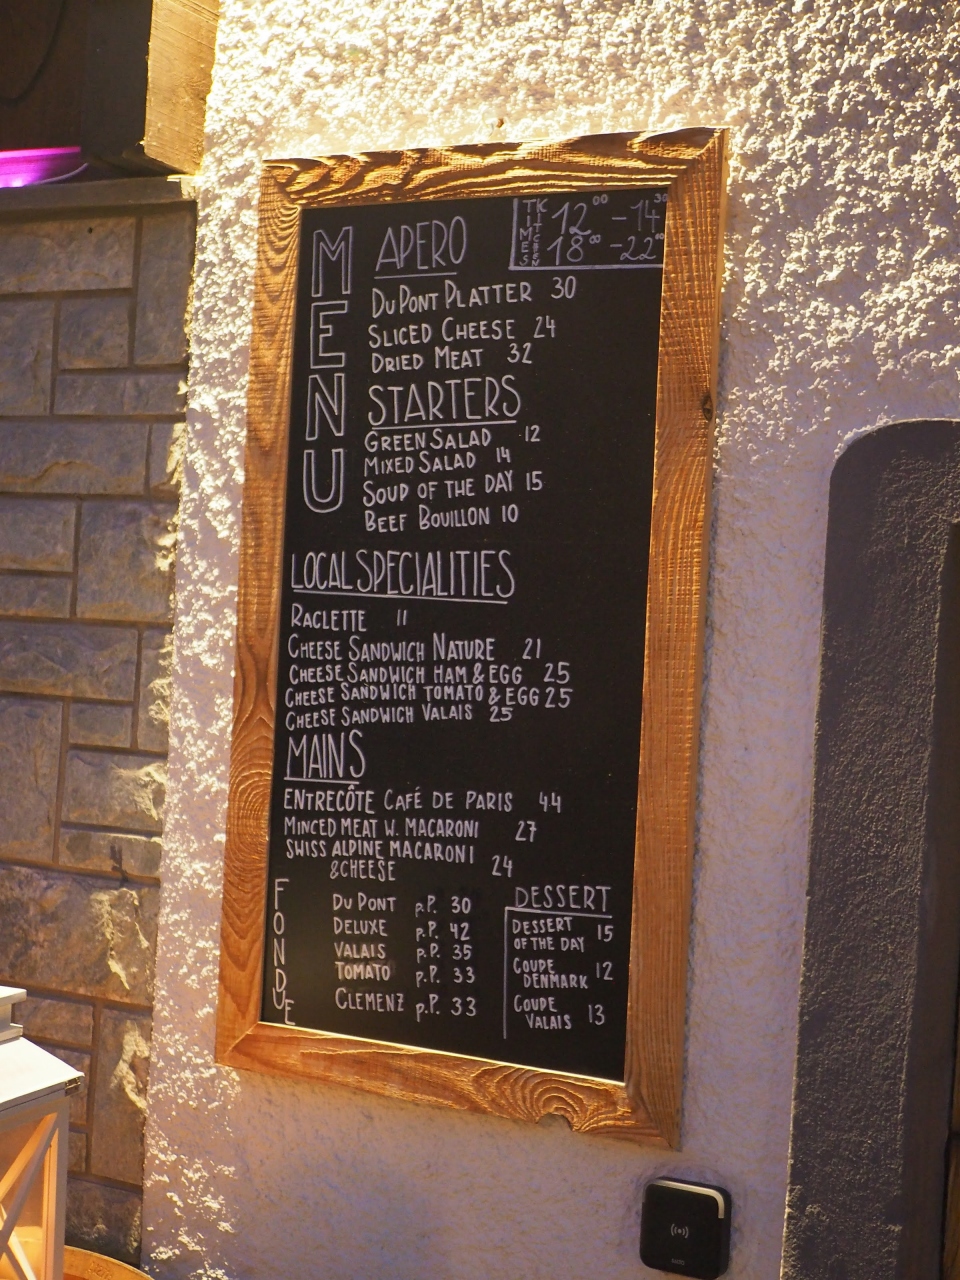 MENU
APERO
KITCHEN TIMES
12⁰⁰ - 14³⁰
18⁰⁰ - 22⁰⁰
DU PONT PLATTER 30
SLICED CHEESE 24
DRIED MEAT 32
STARTERS
GREEN SALAD 12
MIXED SALAD 14
SOUP OF THE DAY 15
BEEF BOUILLON 10
LOCAL SPECIALITIES
RACLETTE 11
CHEESE SANDWICH NATURE 21
CHEESE SANDWICH HAM & EGG 25
CHEESE SANDWICH TOMATO & EGG 25
CHEESE SANDWICH VALAIS 25
MAINS
ENTRECÔTE CAFÉ DE PARIS 44
MINCED MEAT W. MACARONI 27
SWISS ALPINE MACARONI
& CHEESE 24
FONDUE
DU PONT p.P. 30
DELUXE p.P. 42
VALAIS p.P. 35
TOMATO p.P. 33
CLEMENZ p.P. 33
DESSERT
DESSERT
OF THE DAY 15
COUPE
DENMARK 12
COUPE
VALAIS 13